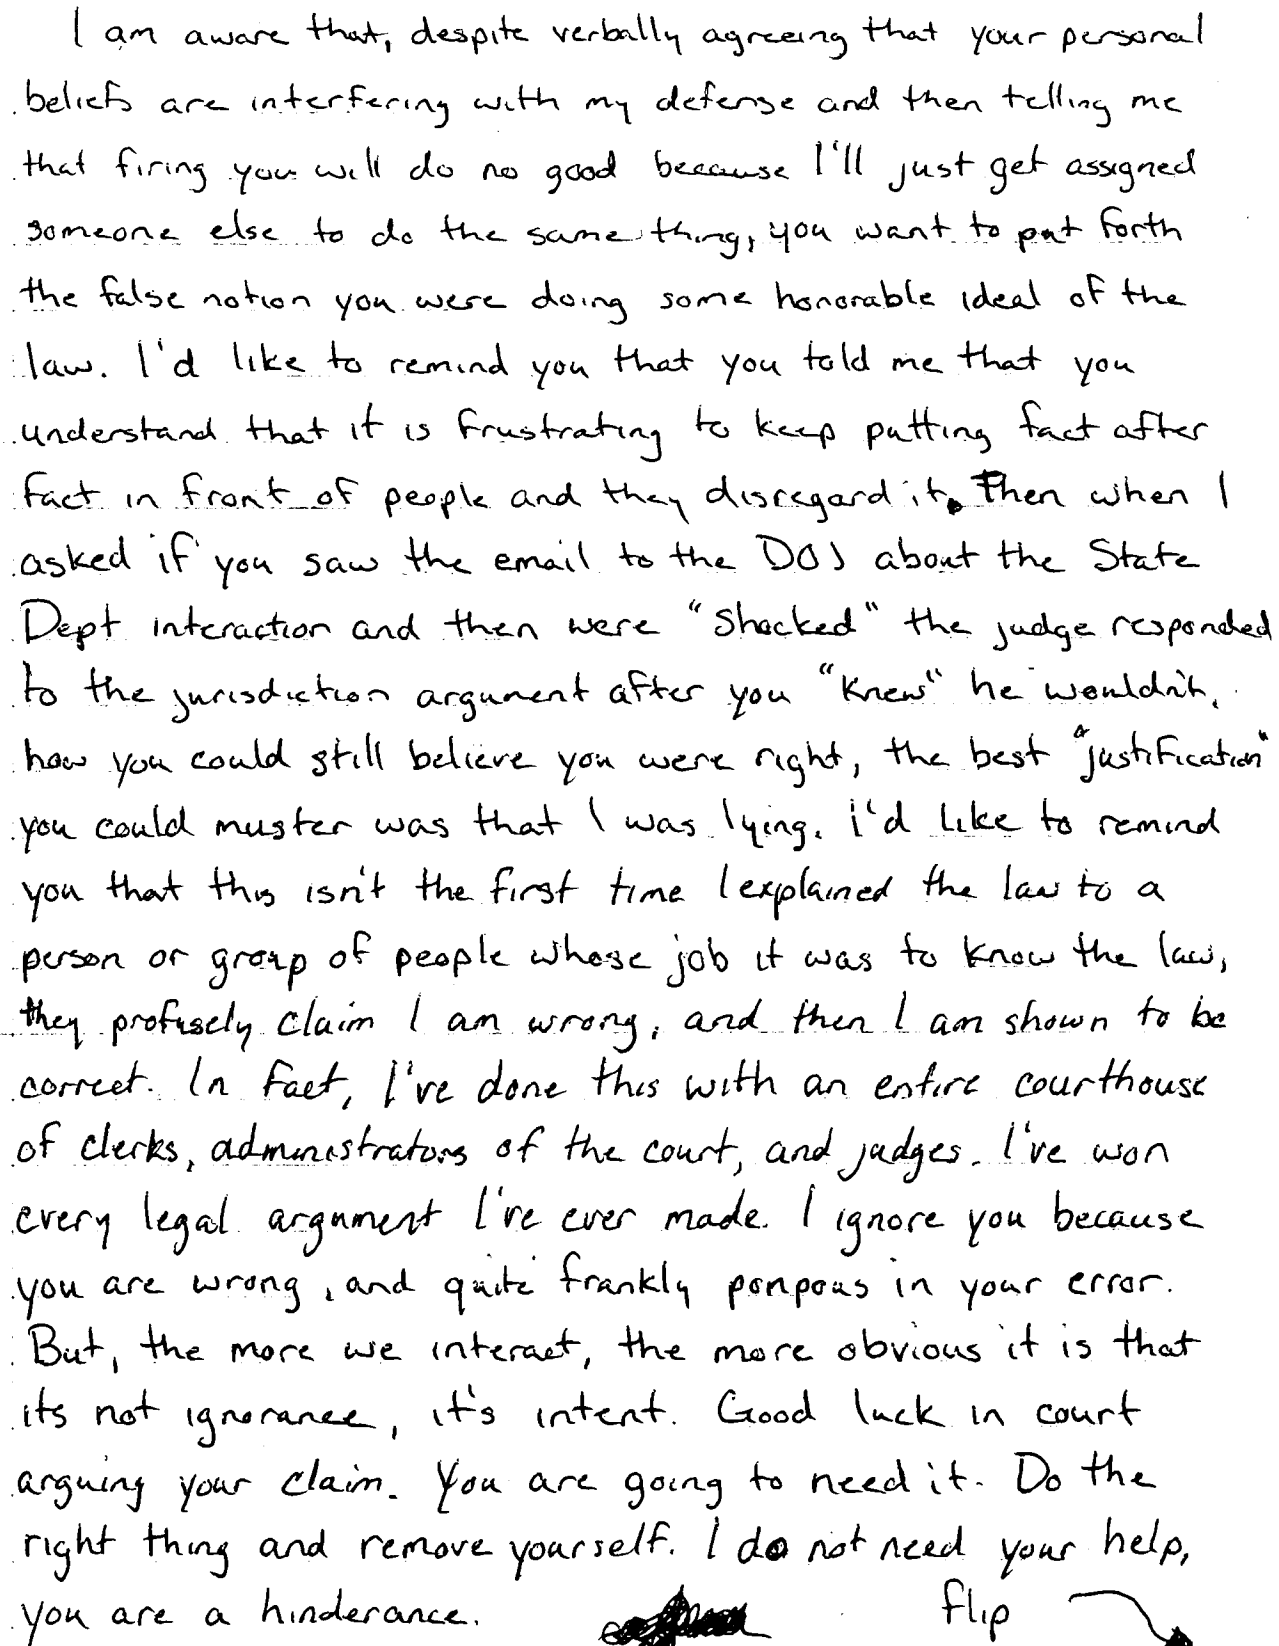 I am aware that, despite verbally agreeing that your personal
beliefs are interfering with my defense and then telling me
that firing you will do no good because I'll just get assigned
someone else to do the same thing, you want to put forth
the false notion you were doing some honorable ideal of the
law. I'd like to remind you that you told me that you
understand that it is frustrating to keep putting fact after
fact in front of people and they disregard it. Then when I
asked if you saw the email to the DOJ about the State
Dept interaction and then were "Shocked" the judge responded
to the jurisdiction argument after you "knew" he wouldn't,
how you could still believe you were right, the best "justification"
you could muster was that I was lying. i'd like to remind
you that this isn't the first time I explained the law to a
person or group of people whose job it was to know the law,
they profusely claim I am wrong, and then I am shown to be
correct. In fact, I've done this with an entire courthouse
of clerks, administrators of the court, and judges. I've won
every legal argument I've ever made. I ignore you because
you are wrong, and quite frankly pompous in your error.
But, the more we interact, the more obvious it is that
its not ignorance, it's intent. Good luck in court
arguing your claim. You are going to need it. Do the
right thing and remove yourself. I do not need your help,
you are a hinderance. flip